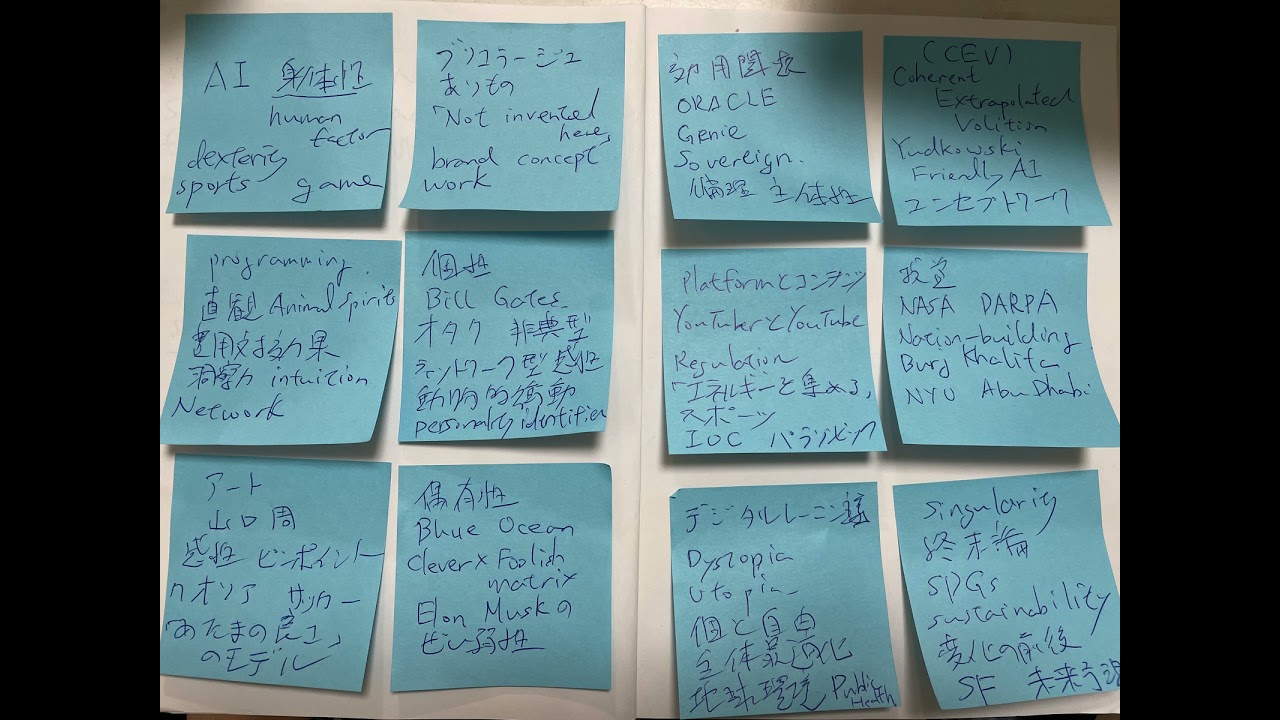 AI 身体性
human
factor
dexterity
sports game
ブリコラージュ
ありもの
「Not invented
here」
brand concept
work
効用関数
ORACLE
Genie
Sovereign.
倫理 主体性
(CEV)
Coherent
Extrapolated
Volition
Yudkowski
Friendly AI
コンセプトワーク
programming
直観 Animal spirits
費用対効果
洞察力 intuition
Network
個性
Bill Gates
オタク 非典型
ティントワーク型 感性
動物的衝動
personality identities
Platformとコンテンツ
YouTuberとYouTube
Regulation
「エネルギーを集める」
スポーツ
IOC パラリンピック
NASA DARPA
Nation-building
Burj Khalifa
NYU Abu Dhabi
アート
山口周
感性 ピンポイント
クオリア サッカー
「あたまの良さ」
のモデル
保有性
Blue Ocean
Clever x Foolish
matrix
Elon Muskの
ぜい弱性
デジタルレーニン主義
Dystopia
Utopia
個と自由
全体最適化
地球環境 Public
Health
singularity
終末論
SDGs
sustainability
変化の前後
SF 未来予測